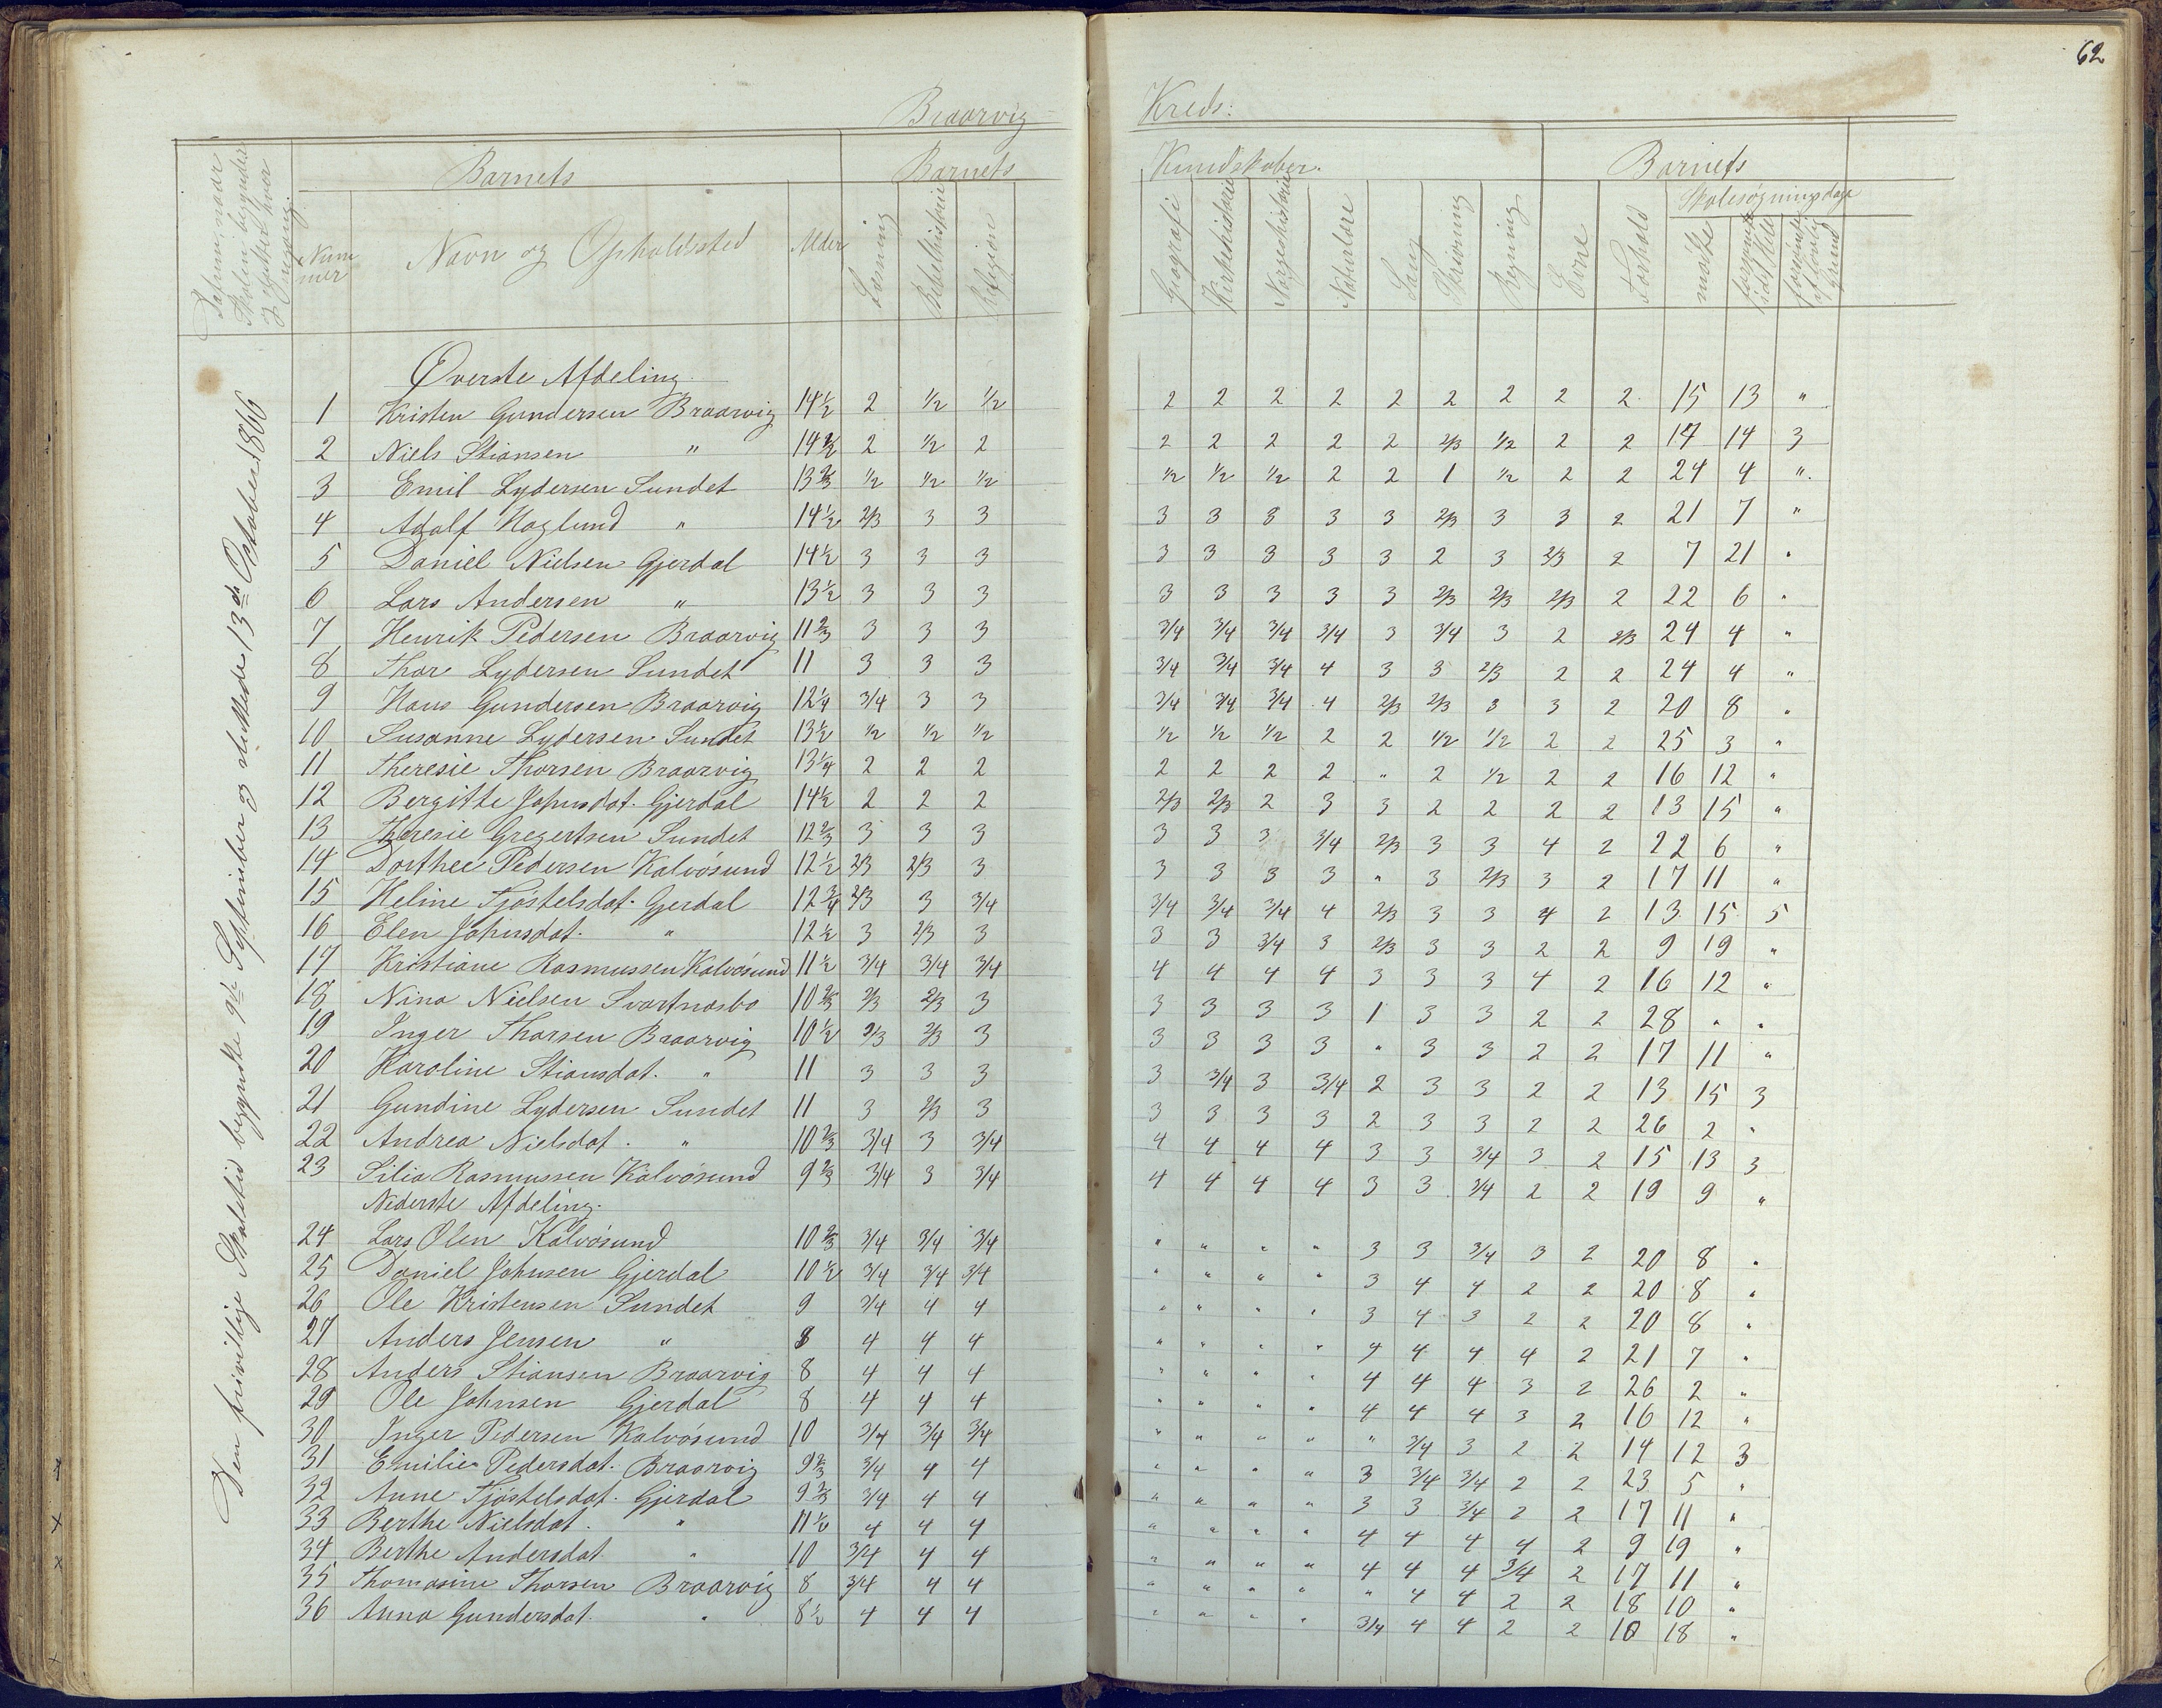 62
Braarvig Kreds:
Datum, naar Skolen begynder og slutter hver Omgang.
Barnets
Barnets Kundskaber.
Barnets
Nummer
Navn og Opholdssted
Alder
Læsning
Bibelhistorie
Religion
Geografi
Kirkehistorie
Norgeshistorie
Naturlære
Sang
Skrivning
Regning
Evne
Forhold
Skolesøgningsdage
mødte
forsømte i det Hele
forsømte af lovlig Grund
Den frivillige Skoletid begyndte 9de September og sluttede 13de October 1866
Øverste Afdeling.
1 Kristen Gundersen Braarvig 14½ 2 ½ ½ 2 2 2 2 2 2 2 2 2 15 13 "
2 Niels Stiansen " 14⅔ 2 ½ 2 2 2 2 2 2 2/3 ½ 2 2 14 14 3
3 Emil Lydersen Sundet 13⅔ ½ ½ ½ ½ ½ ½ 2 2 1 ½ 2 2 24 4 "
4 Adolf Haglund " 14½ 2/3 3 3 3 3 3 3 3 2/3 3 3 2 21 7 "
5 Daniel Nielsen Gjerdal 14½ 3 3 3 3 3 3 3 3 2 3 2/3 2 7 21 "
6 Lars Andersen " 13½ 3 3 3 3 3 3 3 3 2/3 2/3 2/3 2 22 6 "
7 Henrik Pedersen Braarvig 11⅔ 3 3 3 3/4 3/4 3/4 3/4 3 3/4 3 2 2/3 24 4 "
8 Thor Lydersen Sundet 11 3 3 3 3/4 3/4 3/4 4 3 3 2/3 2 2 24 4 "
9 Hans Gundersen Braarvig 12¼ 3/4 3 3 3/4 3/4 3/4 4 2/3 2/3 3 3 2 20 8 "
10 Susanne Lydersen Sundet 13½ ½ ½ ½ ½ ½ ½ 2 2 1/2 1/2 2 2 25 3 "
11 Theresie Thorsen Braarvig 13¼ 2 2 2 2 2 2 2 " 2 ½ 2 2 16 12 "
12 Bergitte Johnsdat. Gjerdal 14½ 2 2 2 2/3 2/3 2 3 3 2 2 2 2 13 15 "
13 Theresie Gregertsen Sundet 12⅔ 3 3 3 3 3 3 3/4 2/3 3 3 4 2 22 6 "
14 Dorthee Pedersen Kalvøsund 12½ 2/3 2/3 3 3 3 3 3 " 3 2/3 3 2 17 11 "
15 Heline Tjøstelsdat. Gjerdal 12¾ 2/3 3 3/4 3/4 3/4 3/4 4 2/3 3 3 4 2 13 15 5
16 Elen Johnsdat. " 12½ 3 2/3 3 3 3 3/4 3 2/3 3 3 2 2 9 19 "
17 Kristiane Rasmussen Kalvøsund 11½ 3/4 3/4 3/4 4 4 4 4 3 3 3 4 2 16 12 "
18 Nina Nielsen Svartnæsbo 10⅔ 2/3 2/3 3 3 3 3 3 1 3 3 2 2 28 " "
19 Inger Thorsen Braarvig 10½ 2/3 2/3 3 3 3 3 3 " 3 3 2 2 17 11 "
20 Karoline Stiansdat. " 11 3 3 3 3 3/4 3 3/4 2 3 3 2 2 13 15 3
21 Gundine Lydersen Sundet 11 3 2/3 3 3 3 3 3 2 3 3 2 2 26 2 "
22 Andrea Nielsdat. " 10⅔ 3/4 3 3/4 4 4 4 4 3 3 3/4 3 2 15 13 3
23 Silia Rasmussen Kalvøsund 9⅔ 3/4 3 3/4 4 4 4 4 3 3 3/4 2 2 19 9 "
Nederste Afdeling.
24 Lars Olsen Kalvøsund 10⅔ 3/4 3/4 3/4 " " " " 3 3 3/4 3 2 20 8 "
25 Daniel Johnsen Gjerdal 10½ 3/4 3/4 3/4 " " " " 3 4 4 2 2 20 8 "
26 Ole Kristensen Sundet 9 3/4 4 4 " " " " 3 4 3 2 2 20 8 "
27 Anders Jensen " 8 4 4 4 " " " " 4 4 4 4 2 21 7 "
28 Anders Stiansen Braarvig 8 4 4 4 " " " " 4 4 4 3 2 26 2 "
29 Ole Johnsen Gjerdal 8 4 4 4 " " " " 4 4 4 3 2 16 12 "
30 Inger Pedersen Kalvøsund 10 3/4 3/4 3/4 " " " " " 3/4 3 2 2 14 12 3
31 Emilie Pedersdat. Braarvig 9⅔ 3/4 4 4 " " " " 3 3/4 3/4 2 2 23 5 "
32 Anne Tjøstelsdat. Gjerdal 9⅔ 3/4 4 4 " " " " 3 3 3/4 2 2 17 11 "
33 Berthe Nielsdat. " 11½ 4 4 4 " " " " 4 4 4 4 2 9 19 "
34 Berthe Andersdat. " 10 3/4 4 4 " " " " 4 4 4 3/4 2 17 11 "
35 Thomasine Thorsen Braarvig 8 3/4 4 4 " " " " " 4 4 2 2 18 10 "
36 Anna Gundersdat. " 8½ 4 4 4 " " " " 3/4 4 4 2 2 10 18 "